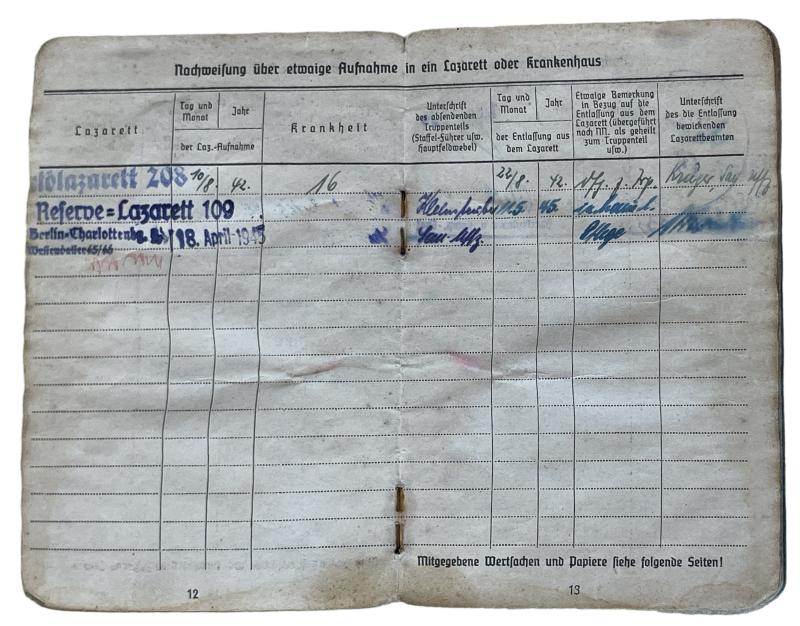 Nachweisung über etwaige Aufnahme in ein Lazarett oder Krankenhaus
Lazarett
Tag und Monat
Jahr
der Laz.-Aufnahme
Krankheit
Unterschrift des absendenden Truppenteils (Staffel-Führer usw. Hauptfeldwebel)
Tag und Monat
Jahr
der Entlassung aus dem Lazarett
Etwaige Bemerkung in Bezug auf die Entlassung aus dem Lazarett (übergeführt nach NN. als geheilt zum Truppenteil usw.)
Unterschrift des die Entlassung bewirkenden Lazarettbeamten
ldlazarett 208 10/8. 42. 16 22/8. 42.
Reserve=Lazarett 109 11.5. 45.
Berlin-Charlottenb. 18. April 1945 Pflege
Westendallee 65/66
Mitgegebene Wertsachen und Papiere siehe folgende Seiten!
12
13